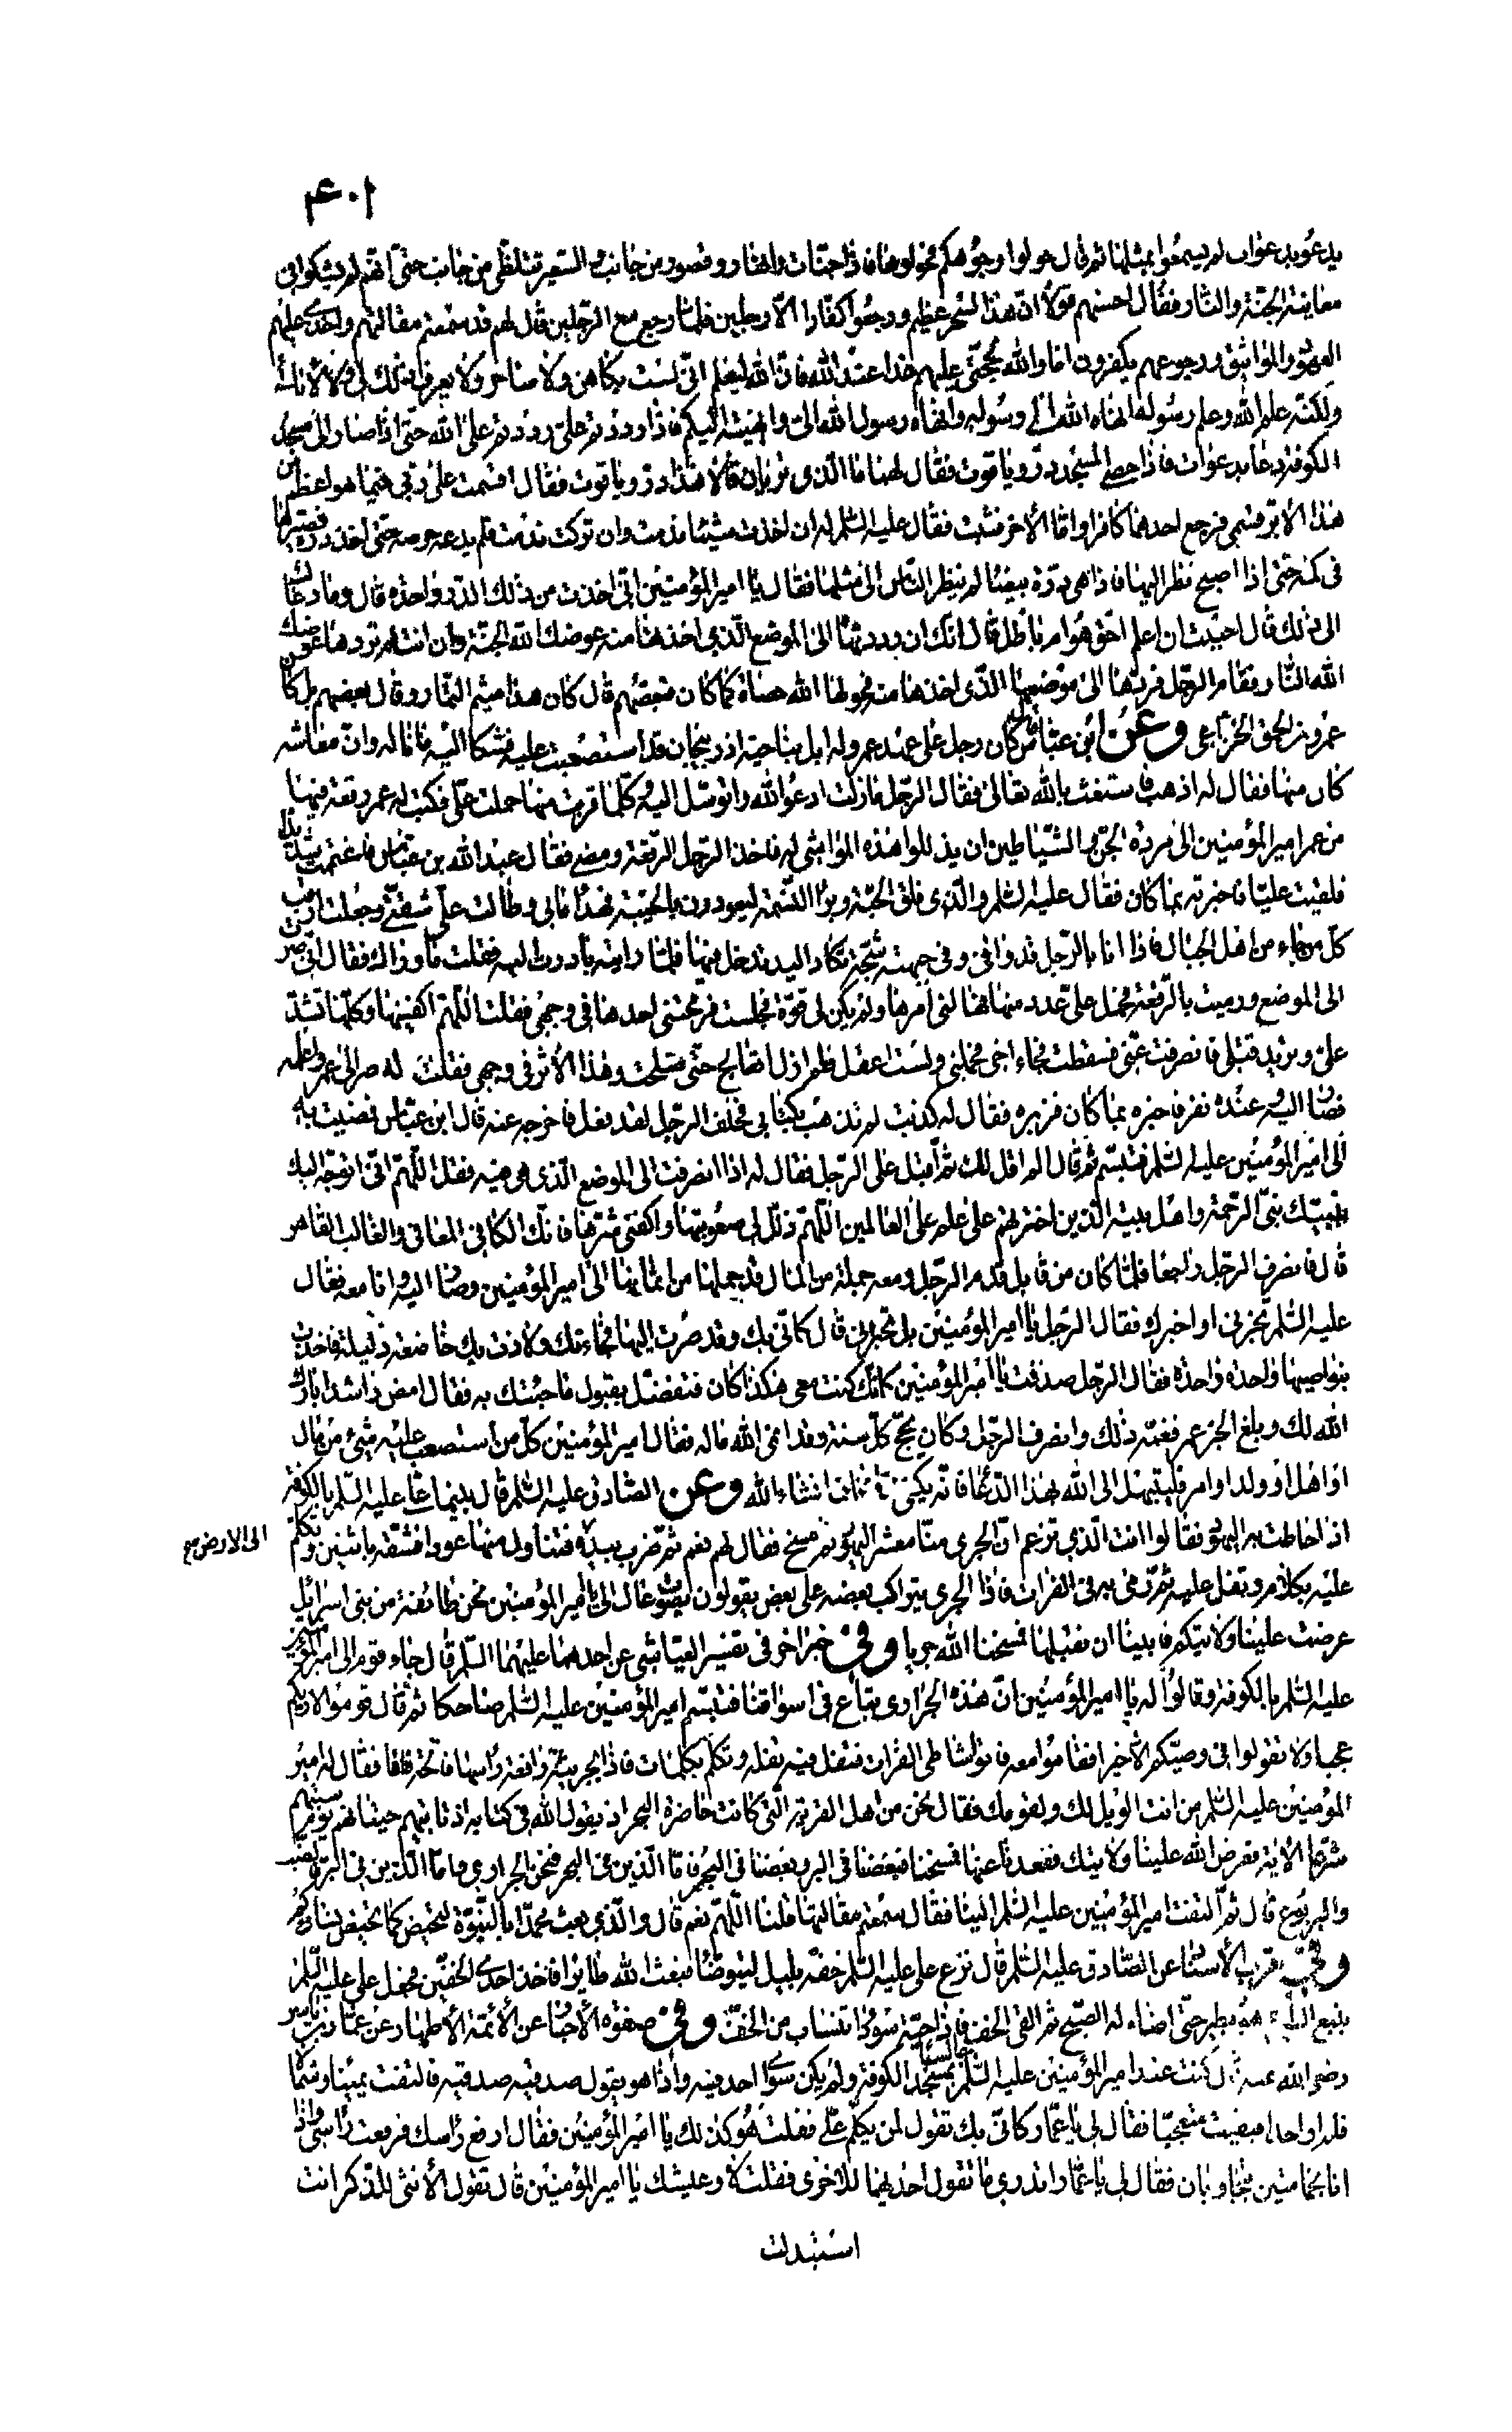 ۴۰۱
يدعو بدعوات لم يسمعوا بمثلها ثم قال حولوا وجوهكم فحولوها فاذا جنات وانهار وقصور من جانب والسعير تتلظى من جانب حتى انهم لم يشكوا في
معاينة الجنة والنار فقال احسنهم قولا ان هذا لسحر عظيم ورجعوا كفارا الا رجلين فلما رجع مع الرجلين قال لهم قد سمعتم مقالتهم واخذى عليهم
العهود والمواثيق ورجوعهم يكفرون اما والله لحجتى عليهم غدا عند الله فان الله ليعلم انى لست بكاهن ولا ساحر ولا يعرف ذلك لى ولا لابائى
ولكنه علم الله وعلم رسوله انهاه الله الى رسوله وانهاه رسول الله الى وانهيته اليكم فاذا رددتم على رددتم على الله حتى اذا صار الى مسجد
الكوفة دعا بدعوات فاذا حصى المسجد در وياقوت فقال لهما ما الذى تريان قالا هذا در وياقوت فقال اقسمت على ربى فيما هو اعظم من
هذا لابر قسمى فرجع احدهما كافرا واما الاخر فثبت فقال عليه السلم له ان اخذت شيئا ندمت وان تركت ندمت فلم يدعه حرصه حتى اخذ درة فصيرها
فى كمه حتى اذا اصبح نظر اليها فاذا هى درة بيضا لم ينظر الناس الى مثلها فقال يا امير المؤمنين انى اخذت من ذلك الدر واحدة قال وما دعاك
الى ذلك قال احببت ان اعلم احق هو ام باطل قال انك ان رددتها الى الموضع الذى اخذتها منه عوضك الله الجنة وان انت لم تردها عوضك
الله النار فقام الرجل فردها الى موضعها الذى اخذها منه فحولها الله حصاة كما كان فبعضهم قال كان هذا ميثم التمار وقال بعضهم بل كان
عمرو بن الحمق الخزاعى وعن ابن عباس قال كان رجل على عهد عمر وله ابل بناحية اذربيجان قد استصعبت عليه فشكا اليه ما ناله وان معاشه
كان منها فقال له اذهب فاستغث بالله تعالى فقال الرجل ما زلت ادعو الله واتوسل اليه وكلما قربت منها حملت على فكتب له عمر رقعة فيها
من عمر امير المؤمنين الى مردة الجن والشياطين ان يذللوا هذه المواشى له فاخذ الرجل الرقعة ومضى فقال عبد الله بن عباس فاغتممت شديدا
فلقيت عليا فاخبرته بما كان فقال عليه السلم والذى فلق الحبة وبرا النسمة ليعودن بالخيبة فهدا ما بى وطالت على شقتى وجعلت ارقب
كل من جاء من اهل الجبال فاذا انا بالرجل قد وافى وفى جبهته شجة تكاد اليد تدخل فيها فلما رايته بادرت اليه فقلت ما وراك فقال انى صرت
الى الموضع ورميت بالرقعة فحمل على عدد منها فهالنى امرها ولم يكن لى قوة فجلست فرمحتنى احدها فى وجهى فقلت اللهم اكفنيها وكلها تشد
على وتريد قتلى فانصرفت عنى فسقطت فجاء اخى فحملنى ولست اعقل فلم ازل اتعالج حتى صلحت وهذا الاثر فى وجهى فقلت له صر الى عمر واعلمه
فصار اليه وعنده نفر فاخبره بما كان فزبره فقال له كذبت لم تذهب بكتابى فحلف الرجل لقد فعل فاخرجه عنه قال ابن عباس فمضيت به
الى امير المؤمنين عليه السلم فتبسم ثم قال الم اقل لك ثم اقبل على الرجل فقال له اذا انصرفت الى الموضع الذى هى فيه فقل اللهم انى اتوجه اليك
بنبيك نبى الرحمة واهل بيته الذين اخترتهم على علم على العالمين اللهم ذلل لى صعوبتها واكفنى شرها فانك الكافى المعافى والغالب القاهر
قال فانصرف الرجل راجعا فلما كان من قابل قدم الرجل ومعه جملة من المال قد حملها من اثمانها الى امير المؤمنين وصار اليه وانا معه فقال
عليه السلم تخبرنى او اخبرك فقال الرجل يا امير المؤمنين بل تخبرنى قال كانى بك وقد صرت اليها فجاءتك ولاذت بك خاضعة ذليلة فاخذت
بنواصيها واحدة واحدة فقال الرجل صدقت يا امير المؤمنين كانك كنت معى هكذا كان فتفضل بقبول ما جئتك به فقال امض راشدا بارك
الله لك وبلغ الخبر عمر فغمه ذلك وانصرف الرجل وكان يحج كل سنة وقد انمى الله ماله فقال امير المؤمنين كل من استصعب عليه شىء من مال
او اهل او ولد او امر فليبتهل الى الله بهذا الدعا فانه يكفى مما يخاف انشاء الله وعن الصادق عليه السلم قال بينما على عليه السلم بالكوفة
اذ احاطت به اليهود فقالوا انت الذى تزعم ان الجرى منا معشر اليهود مسخ فقال لهم نعم ثم ضرب بيده فتناول منها عودا فشقه باثنين وتكلم
الى الارض مع
عليه بكلام وتفل عليه ثم رمى به فى الفرات فاذا الجرى يتراكب بعضه على بعض يقولون بصوت عال الى يا امير المؤمنين نحن طائفة من بنى اسرائيل
عرضت علينا ولايتكم فابينا ان نقبلها فمسخنا الله جريا وفى خبر اخر فى تفسير العياشى عن احدهما عليهما السلم قال جاء قوم الى امير المؤمنين
عليه السلم بالكوفة وقالوا له يا امير المؤمنين ان هذه الجرارى تباع فى اسواقنا فتبسم امير المؤمنين عليه السلم ضاحكا ثم قال قوموا لاريكم
عجبا ولا تقولوا فى وصيكم الا خيرا فقاموا معه فاتوا شاطى الفرات فتفل فيه تفلة وتكلم بكلمات فاذا بجريثة رافعة راسها فاتحة فاها فقال له امير
المؤمنين عليه السلم من انت الويل لك ولقومك فقال نحن من اهل القرية التى كانت حاضرة البحر اذ يقول الله فى كتابه اذ تاتيهم حيتانهم يوم سبتهم
شرعا الاية فعرض الله علينا ولايتك فقعدنا عنها فمسخنا فبعضنا فى البر وبعضنا فى البحر فاما الذين فى البحر فنحن الجرارى واما الذين فى البر فالضب
واليربوع قال ثم التفت امير المؤمنين عليه السلم الينا فقال سمعتم مقالتها قلنا اللهم نعم قال والذى بعث محمدا بالنبوة لتحيض كما تحيض نساؤكم
وفى قرب الاسناد عن الصادق عليه السلم قال نزع على عليه السلم خفه بليل ليتوضا فبعث الله طايرا فاخذ احدى الخفين فجعل على عليه السلم
يتبع الطير وهو يطير حتى اضاء له الصبح ثم القى الخف فاذا حية سوداء تنساب من الخف وفى صفوة الاخبار عن الائمة الاطهار عن عمار بن ياسر
رضى الله عنه قال كنت عند امير المؤمنين عليه السلم جالسا بمسجد الكوفة ولم يكن سوى احد فيه واذا هو يقول صدقيه صدقيه فالتفت يمينا وشمالا
فلم ار احدا فبقيت متعجبا فقال لى يا عمار كانى بك تقول لمن يكلم على فقلت هو كذلك يا امير المؤمنين فقال ارفع راسك فرفعت راسى واذا
انا بحمامتين يتجاوبان فقال لى يا عمار اتدرى ما تقول احديهما للاخرى فقلت لا وعيشك يا امير المؤمنين قال تقول الانثى للذكر انت
استبدلت